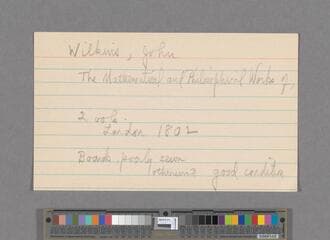 Wilkins, John
The Mathematical and Philosophical Works of,
2 vols.
London 1802
Boards, poorly sewn
otherwise good condition